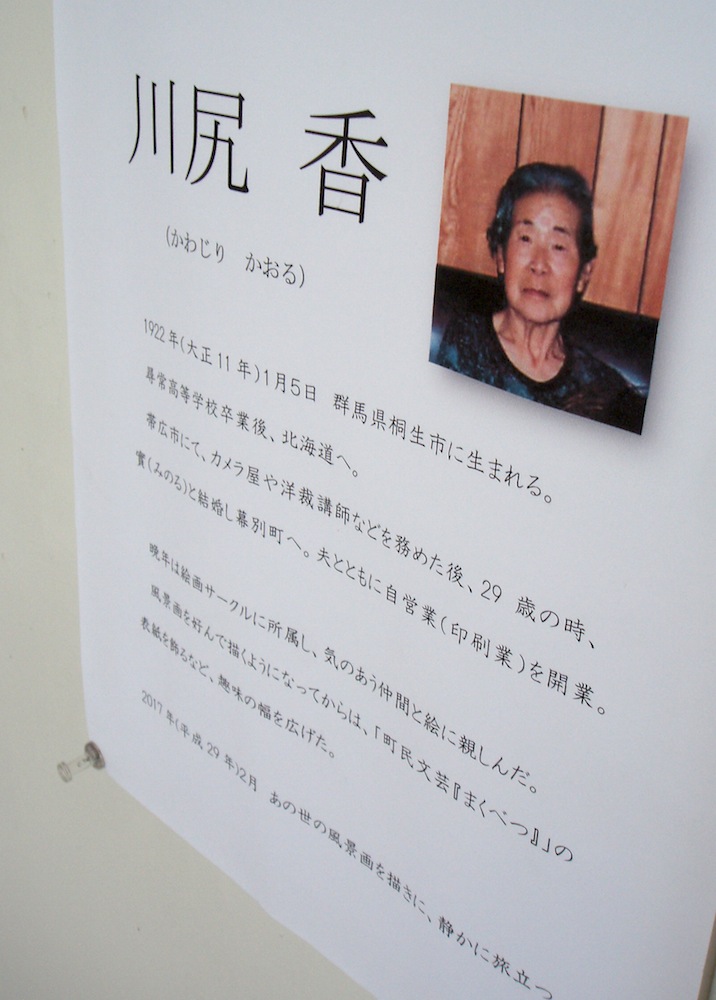 川尻 香
(かわじり かおる)
1922年(大正11年)1月5日 群馬県桐生市に生まれる。
尋常高等学校卒業後、北海道へ。
帯広市にて、カメラ屋や洋裁講師などを務めた後、29歳の時、
實(みのる)と結婚し幕別町へ。夫とともに自営業(印刷業)を開業。
晩年は絵画サークルに所属し、気のあう仲間と絵に親しんだ。
風景画を好んで描くようになってからは、「町民文芸『まくべつ』」の
表紙を飾るなど、趣味の幅を広げた。
2017年(平成29年)2月 あの世の風景画を描きに、静かに旅立つ